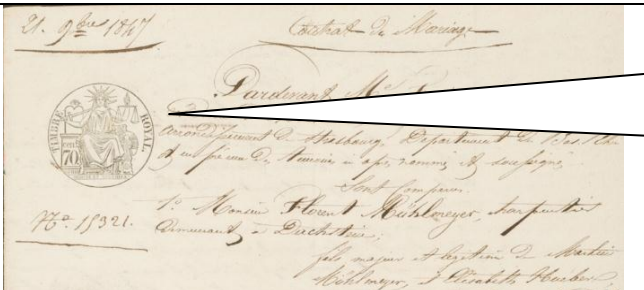 21. 9bre 1847
Contrat de Mariage
Pardevant Me
TIMBRE ROYAL.
70
arrondissement de Strasbourg, Département du Bas Rhin
et en présence de témoins ci après nommés et soussignés,
Sont Comparus
No. 15321.
1o. Monsieur Florent Mühlmeyer, charpentier
demeurant à Dachstein,
fils majeur et légitime de Martin
Mühlmeyer, & Elisabeth Huober,